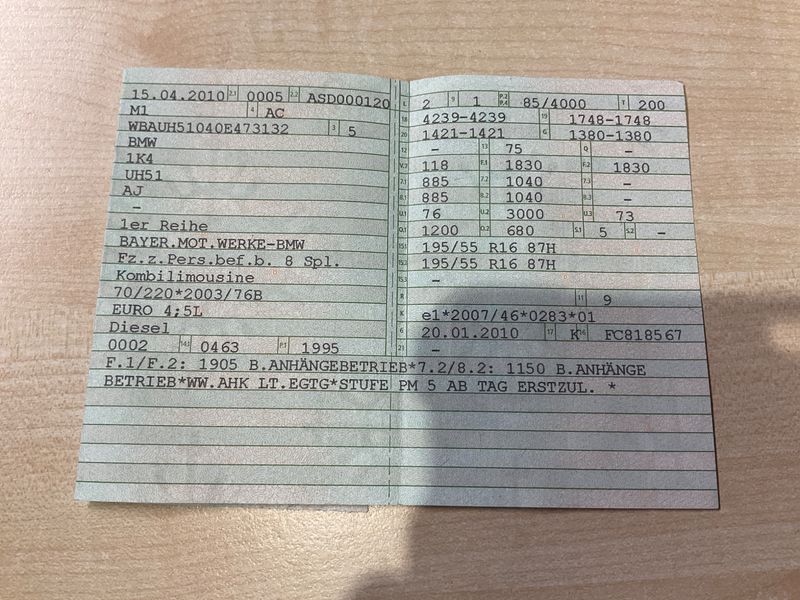 15.04.2010 2.1 0005 2.2 ASD000120
M1 4 AC
WBAUH51040E473132 3 5
BMW
1K4
UH51
AJ
-
1er Reihe
BAYER.MOT.WERKE-BMW
Fz.z.Pers.bef.b. 8 Spl.
Kombilimousine
70/220*2003/76B
EURO 4;5L
Diesel
0002 14.1 0463 P.1 1995
L 2 9 1 P.2 P.4 85/4000 T 200
18 4239-4239 19 1748-1748
20 1421-1421 G 1380-1380
12 - 13 75 Q -
V.7 118 F.1 1830 F.2 1830
7.1 885 7.2 1040 7.3 -
8.1 885 8.2 1040 8.3 -
U.1 76 U.2 3000 U.3 73
O.1 1200 O.2 680 S.1 5 S.2 -
15.1 195/55 R16 87H
15.2 195/55 R16 87H
15.3 -
R 11 9
K e1*2007/46*0283*01
6 20.01.2010 17 K 16 FC818567
21 -
F.1/F.2: 1905 B.ANHÄNGEBETRIEB*7.2/8.2: 1150 B.ANHÄNGE
BETRIEB*WW.AHK LT.EGTG*STUFE PM 5 AB TAG ERSTZUL. *